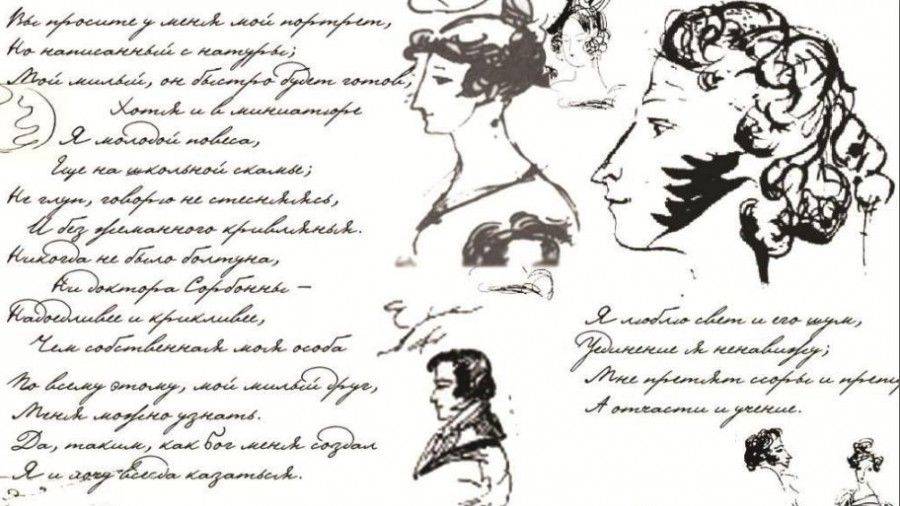 Вы просите у меня мой портрет,
Но написанный с натуры;
Мой милый, он быстро будет готов,
Хотя и в миниатюре
Я молодой повеса,
Еще на школьной скамье;
Не глуп, говорю не стесняясь,
И без жеманного кривлянья.
Никогда не было болтуна,
Ни доктора Сорбонны –
Надоедливее и крикливее,
Чем собственная моя особа
По всему этому, мой милый друг,
Меня можно узнать.
Да, таким, как Бог меня создал
Я и хочу всегда казаться.
Я люблю свет и его шум,
Уединение я ненавижу;
Мне претят ссоры и
А отчасти и учение.